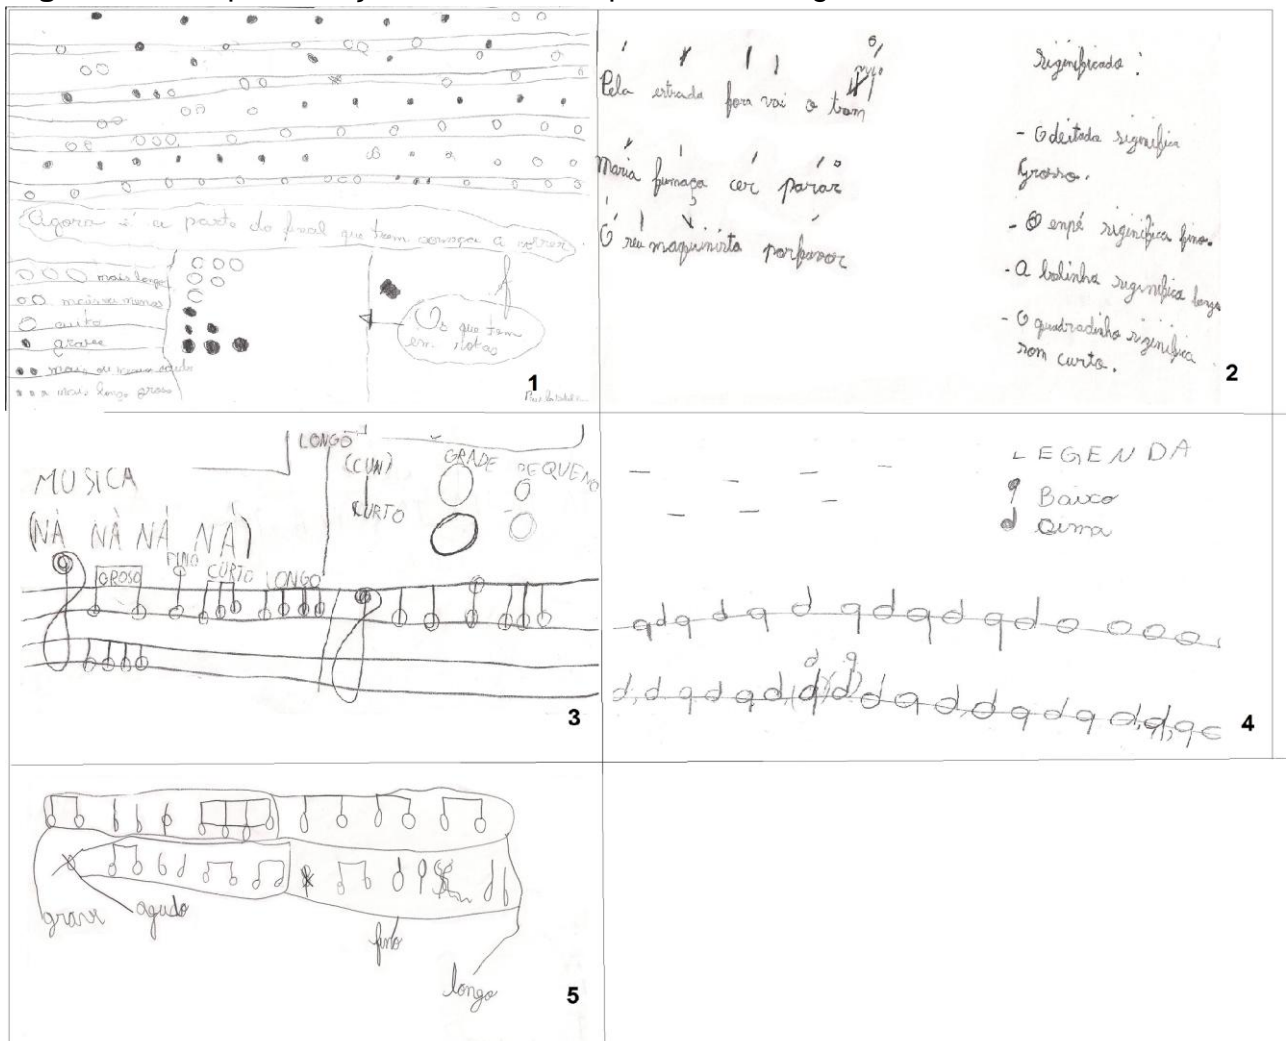 Agora é a parte do final que trem começa a correr.
mais longo
mais ou menos
curto
grave
mais ou menos
mais longo groso
Os que tem
em notas
1
Pela estrada fora vai o trem
Maria fumaça cer parar
O seu maquinista porfavor
Siginificado:
- O deitada siginifica
Grosso.
- O enpé siginifica fino.
- A bolinha siginifica longo
- O quadradinho siginifica
som curto.
2
LONGO
(CUN)
CURTO
GRADE
PEQUENO
MUSICA
(NÀ NÀ NÁ NÁ)
GROSO
FINO
CURTO
LONGO
3
LEGENDA
Baixo
Cima
4
grave
agudo
fino
longo
5